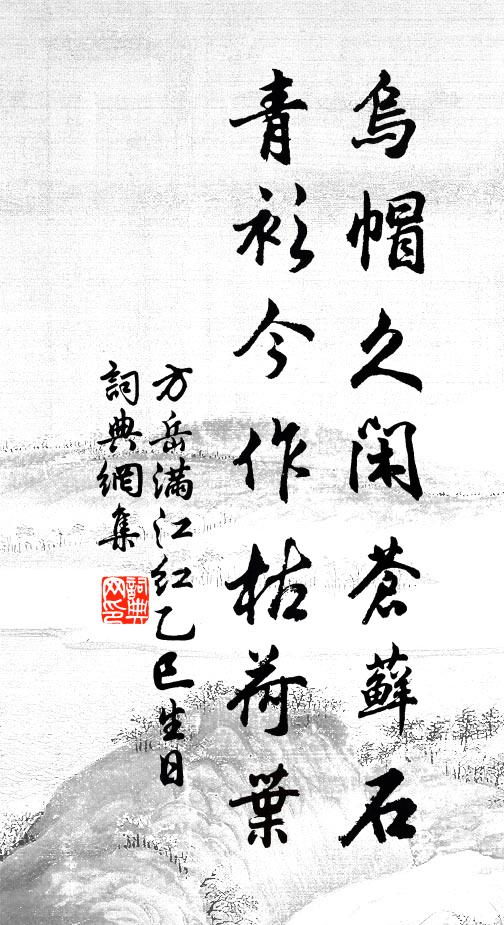 烏帽久閑蒼蘚石
青衫今作枯荷葉
方岳滿江紅乙巳生日
詞典網集
詞典網印